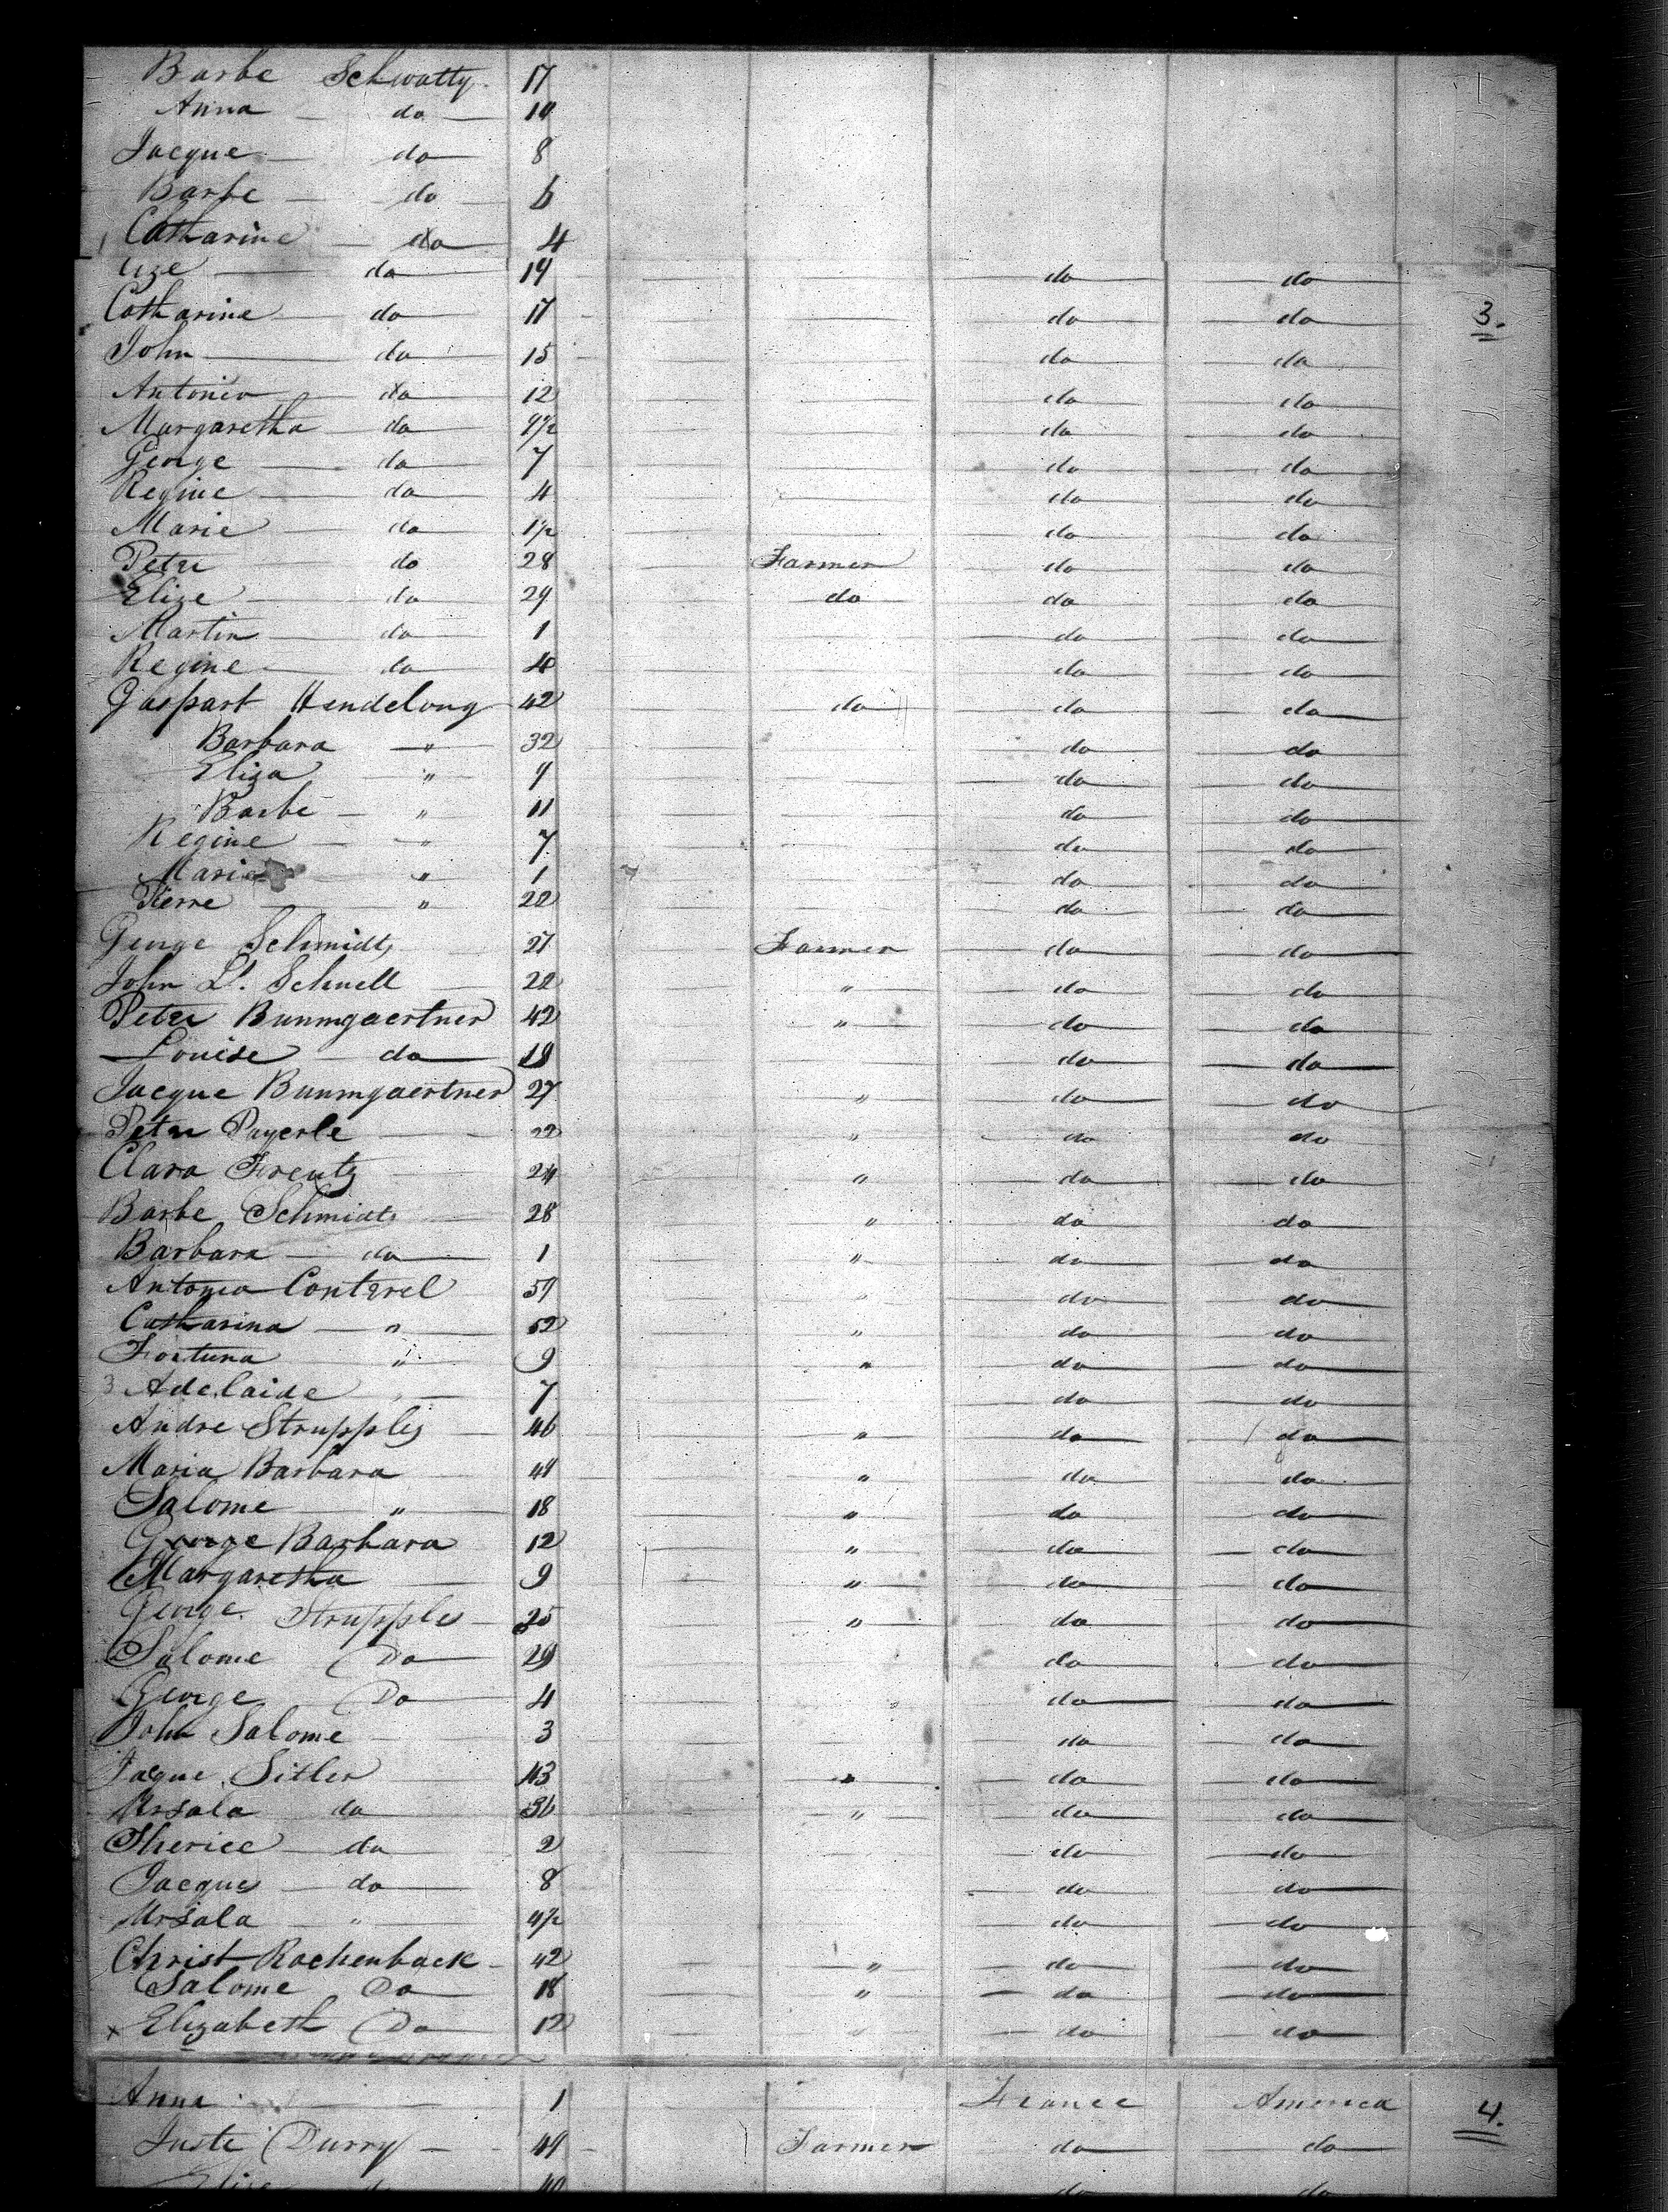 Barbe Schwatty 17
Anna do 10
Jacque do 8
Barbe do 6
Catharine do 4
do 19 do do
Catharine do 17 do do
3.
John do 15 do do
Antonio do 12 do do
Margaretha do 9½ do do
George do 7 do do
Regine do 4 do do
Marie do 1½ do do
Peter do 28 Farmer do do
Elize do 29 do do do
Martin do 1 do do
Regine do 4 do do
Gaspart Hendelong 42 do do do
Barbara " 32 do do
Eliza " 9 do do
Barbe " 11 do do
Regine " 7 do do
Marie " 1 do do
Pierre " 22 do do
George Schmidt 27 Farmer do do
John Schnell 22 " do do
Peter Bunmgaertner 42 " do do
Louise do 19 do do
Jacque Bunmgaertner 27 " do do
Peter Payerle 22 " do do
Clara Freutz 24 " do do
Barbe Schmidt 28 " do do
Barbara do 1 " do do
Antonio Conterel 59 " do do
Catharina " 52 " do do
Fortuna " 9 " do do
3 Adelaide " 7 do do
Andre Strupples 46 " do do
Maria Barbara " do do
Salome " 18 " do do
George Barbara 12 " do do
Margaretha 9 " do do
George Strupples 25 " do do
Salome Do 29 do do
George Do 4 " do do
John Salome 3 do do
Jacque Sitler 43 " do do
Ursala do 36 " do do
Therice do 2 do do
Jacques do 8 do do
Ursala " 4½ do do
Christ Rochenback 42 " do do
Salome Do 18 " do do
x Elizabeth Do 12 " do do
Anna 1 France America
4.
Juste Durry 49 Farmer do do
Elise 40 do do